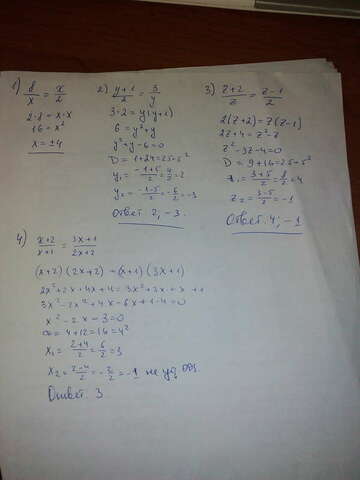 1) 8/x = x/2
2·8 = x·x
16 = x²
x = ±4
2) y+1/2 = 3/y
3·2 = y(y+1)
6 = y²+y
y²+y-6=0
D = 1+24=25=5²
y₁ = -1+5/2 = 4/2 = 2
y₂ = -1-5/2 = -6/2 = -3
Ответ 2, -3.
3) z+2/z = z-1/2
2(z+2) = z(z-1)
2z+4 = z²-z
z²-3z-4=0
D = 9+16=25=5²
z₁ = 3+5/2 = 8/2 = 4
z₂ = 3-5/2 = -1
Ответ 4; -1
4) x+2/x+1 = 3x+1/2x+2
(x+2)(2x+2) = (x+1)(3x+1)
2x²+2x+4x+4=3x²+3x+x+1
3x²-2x²+4x-6x+1-4=0
x²-2x-3=0
D = 4+12=16=4²
x₁ = 2+4/2 = 6/2 = 3
x₂ = 2-4/2 = -2/2 = -1 не уд ОДЗ.
Ответ 3.